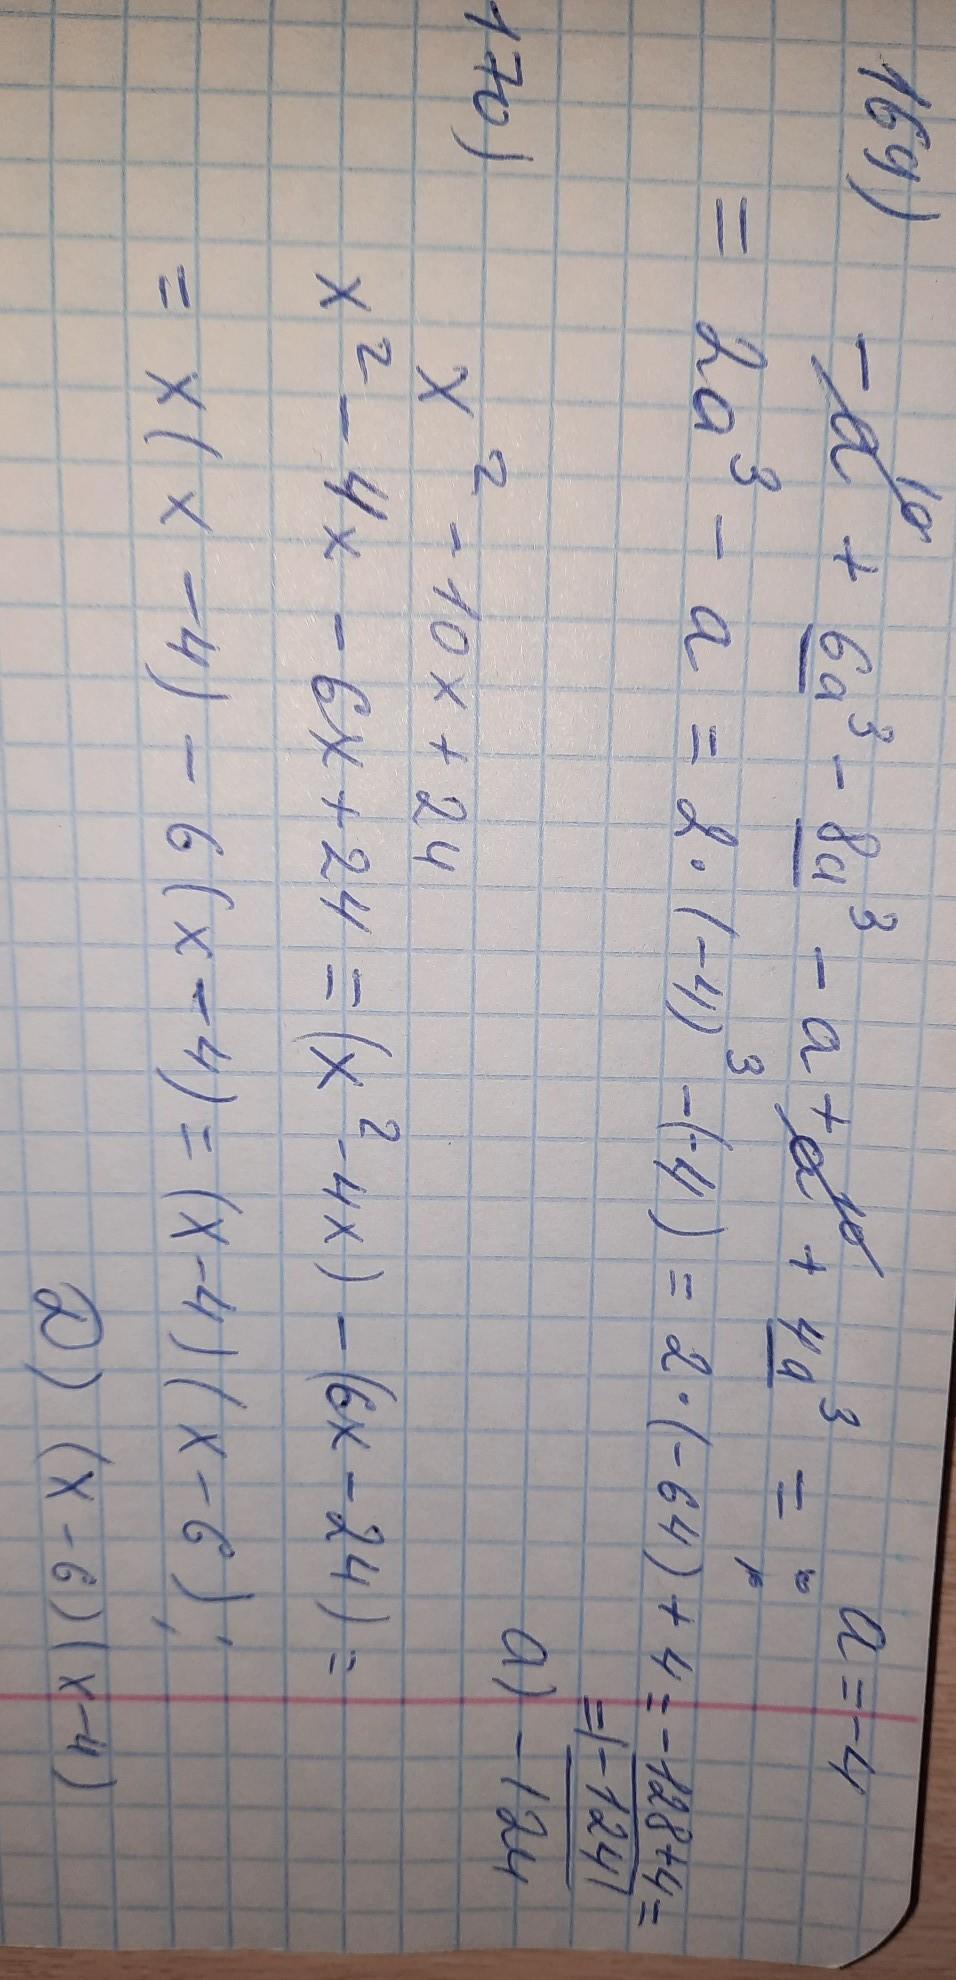 169) -a¹⁰ + 6a³ - 8a³ - a + a¹⁰ + 4a³ = a = -4
= 2a³ - a = 2·(-4)³ -(-4) = 2·(-64) + 4 = -128+4 =
= -124
a) -124
170) x² - 10x + 24
x² - 4x - 6x + 24 = (x² - 4x) - (6x - 24) =
= x(x - 4) - 6(x - 4) = (x - 4)(x - 6);
2) (x - 6)(x - 4)